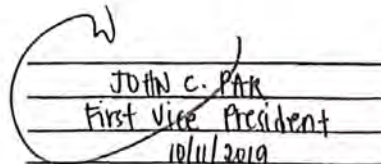 JOHN C. PAK
First Vice President
10/11/2019